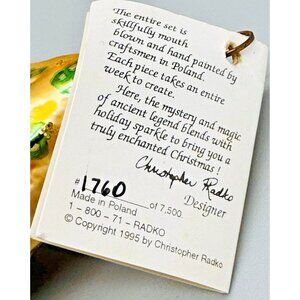 The entire set is
skillfully mouth
blown and hand painted by
craftsmen in Poland.
Each piece takes an entire
week to create.
Here, the mystery and magic
of ancient legend blends with
holiday sparkle to bring you a
truly enchanted Christmas!
Christopher Radko
Designer
# 1760 of 7,500
Made in Poland
1 - 800 - 71 - RADKO
© Copyright 1995 by Christopher Radko